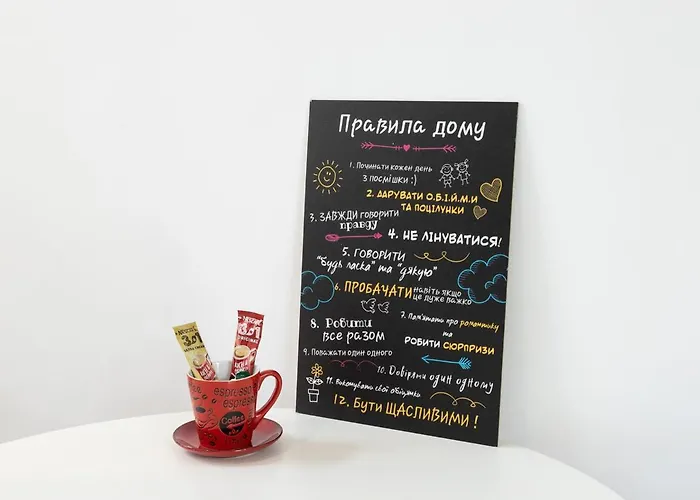 Правила дому
1. Починати кожен день
з посмішки :)
2. ДАРУВАТИ О.Б.І.Й.М.И
ТА ПОЦІЛУНКИ
3. ЗАВЖДИ ГОВОРИТИ
правду
4. НЕ ЛІНУВАТИСЯ!
5. ГОВОРИТИ
"будь ласка" та "дякую"
6. ПРОБАЧАТИ навіть якщо
це дуже важко
7. Пам'ятати про романтику
та
РОБИТИ СЮРПРИЗИ
8. Робити
все разом
9. Поважати один одного
10. Довіряти один одному
11. Виконувати свої обіцянки
12. Бути ЩАСЛИВИМИ!
3в1
3в1
espresso
espresso
Coffee